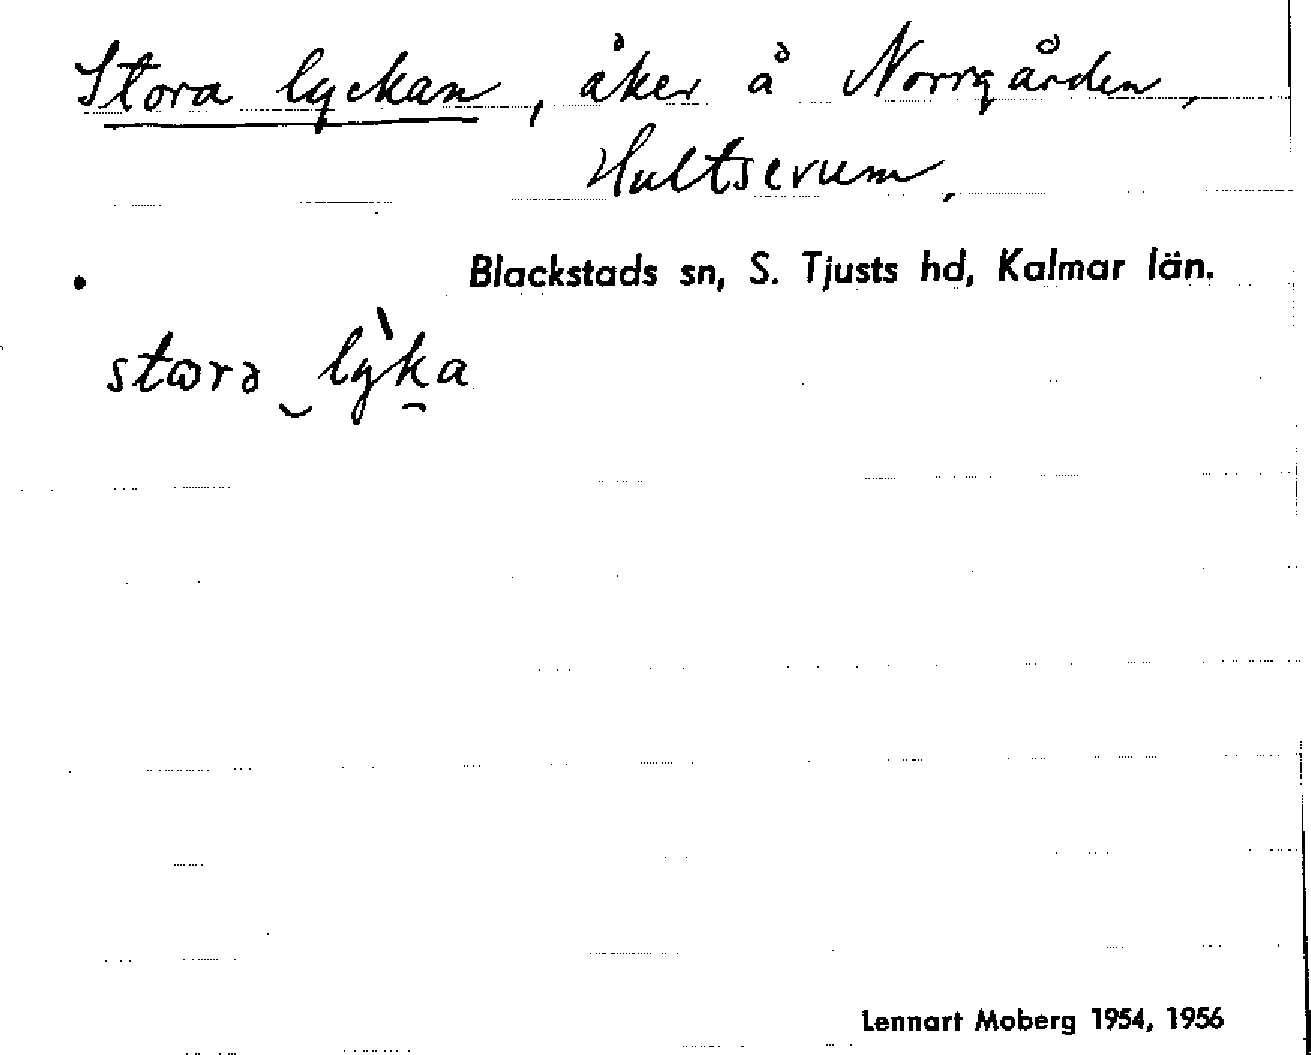 Stora lyckan, åker å Norrgården,
Hultserum.
Blackstads sn, S. Tjusts hd, Kalmar län.
stωrə ly̆̀ka
Lennart Moberg 1954, 1956